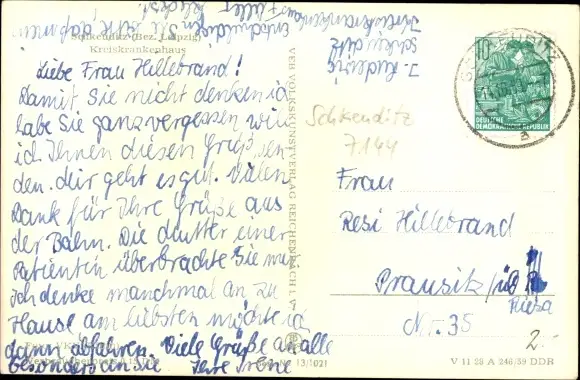 Schkeuditz (Bez. Leipzig)
Kreiskrankenhaus
Liebe Frau Hillebrand!
Damit Sie nicht denken ich
habe Sie ganz vergessen will
ich Ihnen diesen Gruß sen-
den. Mir geht es gut. Vielen
Dank für Ihre Grüße aus
der Bahn. Die Mutter einer
Patientin überbrachte Sie mir
Ich denke manchmal an zu
Hause am liebsten möchte ich
dann abfahren. Viele Grüße an alle
besonders an Sie Ihre Irene
Entschuldigen Sie
Füller
J. Ludwig
Schkeuditz
Kreiskrankenhaus
VEB VOLKSKUNSTVERLAG REICHENBACH I. V.
10
DEUTSCHE
DEMOKRATISCHE REPUBLIK
Schkeuditz
7144
Frau
Resi Hillebrand
Prausitz/üb
Riesa
Nr. 35
2.-
V 11 28 A 246/59 DDR